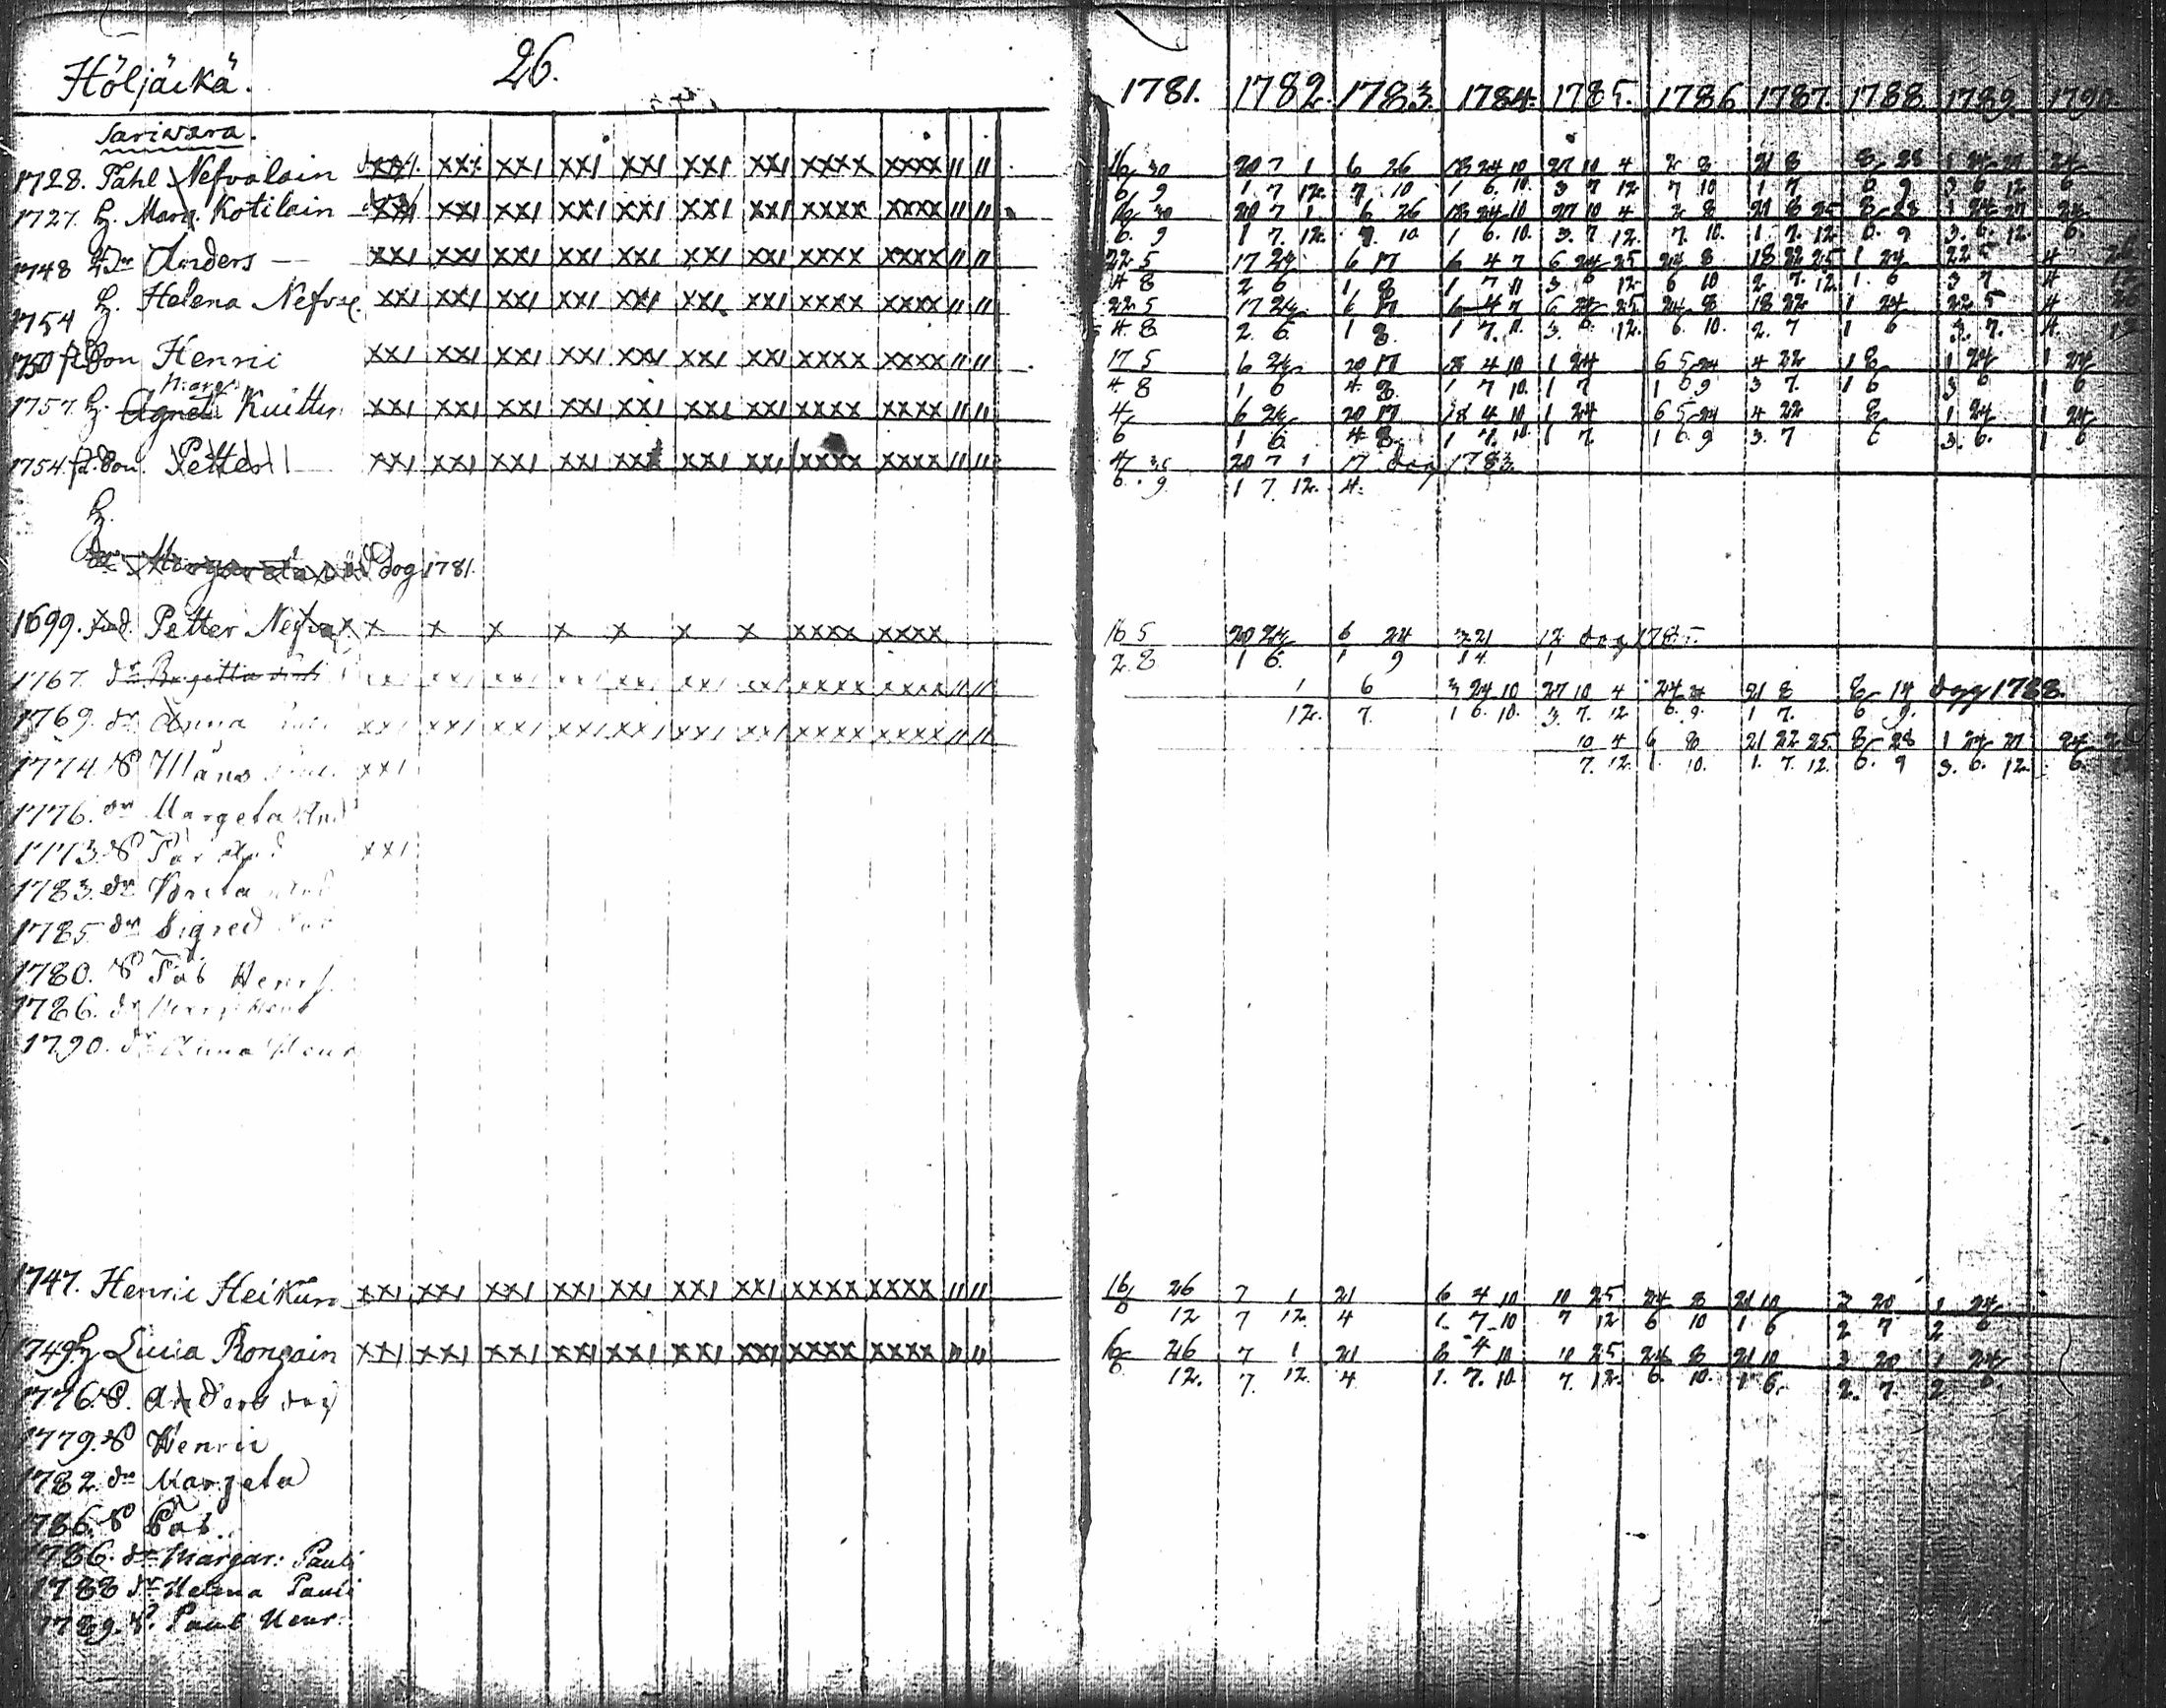 Höljäikä. 26.
Sarivara.
1728. Påhl Nefvalain xxı xxı xxı xxı xxı xxı xxı xxxx xxxx ıı ıı
1727. h. Marg. Kotilain xxı xxı xxı xxı xxı xxı xxı xxxx xxxx ıı ıı
1748 Anders — xxı xxı xxı xxı xxı xxı xxı xxxx xxxx ıı ıı
1754 h. Helena Nefva. xxı xxı xxı xxı xxı xxı xxı xxxx xxxx
1750 Son Henric xxı xxı xxı xxı xxı xxı xxı xxxx xxxx ıı ıı
Marg.
1757. h. Agneta Kuittin xxı xxı xxı xxı xxı xxı xxı xxxx xxxx ıı ıı
1754. Son Petter xxı xxı xxı xxı xxı xxı xxı xxxx xxxx ıı ıı
h.
dr Margareta dog 1781.
1699. Petter Nefva x x x x x x x xxxx xxxx
1767. dr Brigitta xxı xxı xxı xxı xxı xxı xxı xxxx xxxx ıı ıı
1769. dr Anna xxı xxı xxı xxı xxı xxı xxı xxxx xxxx ıı ıı
1774. S Måns xxı
1776. dr Margeta And
1773. S Påv xxı
1783. dr
1785 dr Sigred
1780. S Påv Henr.
1786. dr
1790. dr Anna Henr
1747. Henric Heikurn xxı xxı xxı xxı xxı xxı xxı xxxx xxxx ıı ıı
1749. h Lucia Rongain xxı xxı xxı xxı xxı xxı xxı xxxx xxxx ıı ıı
1776. S. Anders dog
1779. S Henric
1782 dr Margeta
1786. S
1786. dr Margar: Pauli
1788 dr Helena Pauli
1789. S. Paul Henr.
1781. 1782. 1783. 1784. 1785. 1786 1787. 1788. 1789. 1790.
16 30 20 7 1 6 26 18 24 10 27 10 4 2 8 21 8 8 28 1 24 27 24
6 9 1 7 12. 7 10 1 6. 10. 3 7 12 7 10 1 7 6 9 3 6 12 6
16 30 20 7 1 6 26 18 24 10 27 10 4 2 8 21 8 25 8 28 1 24 27 24
6. 9 1 7. 12. 7. 10 1 6. 10. 3. 7 12. 7. 10. 1. 7. 12. 6. 9 3. 6. 12. 6.
22 5 17 24 6 17 6 4 7 6 24 25 24 8 18 22 25 1 24 22 5 4
4 8 2 6 1 8 1 7 11 3 6 12 6 10 2 7. 12. 1 6 3 7 4
22 5 17 24 6 17 6 4 7 6 24 25 24 8 18 22 1 24 22 5 4
4 8. 2 6. 1 8. 1 7. 11. 3. 6. 12. 6. 10. 2. 7 1 6 3. 7. 4.
17 5 6 24 20 17 18 4 10 1 24 6 5 24 4 22 1 8 1 24 1 24
4 8 1 6 4 8 1 7 10. 1 7 1 6 9 3 7. 1 6 3 6 1 6
4 6 24 20 17 18 4 10 1 24 6 5 24 4 22 8 1 24 1 24
6 1 6. 4 8. 1 7. 10 1 7. 1 6. 9 3. 7 6 3. 6. 1 6
20 7 1 17 dog 1783
6. 9 1 7. 12. 4.
16 5 20 24 6 24 3 21 12 dog 1785.
2 8 1 6. 1 9 1 4. 1
1 6 3 24 10 27 10 4 24 21 8 8 14 dog 1788.
12. 7. 1 6. 10. 3. 7. 12 6. 9. 1 7. 6 9.
10 4 6 8 21 22 25. 8 28 1 24 27 24
7. 12. 1. 10. 1. 7. 12. 6. 9 3. 6. 12. 6.
16 26 7 1 21 6 4 10 10 25 24 8 21 10 3 20 1 24
6 12 7 12. 4 1. 7 10 7 12 6 10 1 6 2 7 2 6
16 26 7 1 21 6 4 10 10 25 24 8 21 10 3 20 1 24
6 12. 7. 12. 4 1. 7. 10. 7. 12. 6. 10. 1 6. 2. 7. 2. 6.